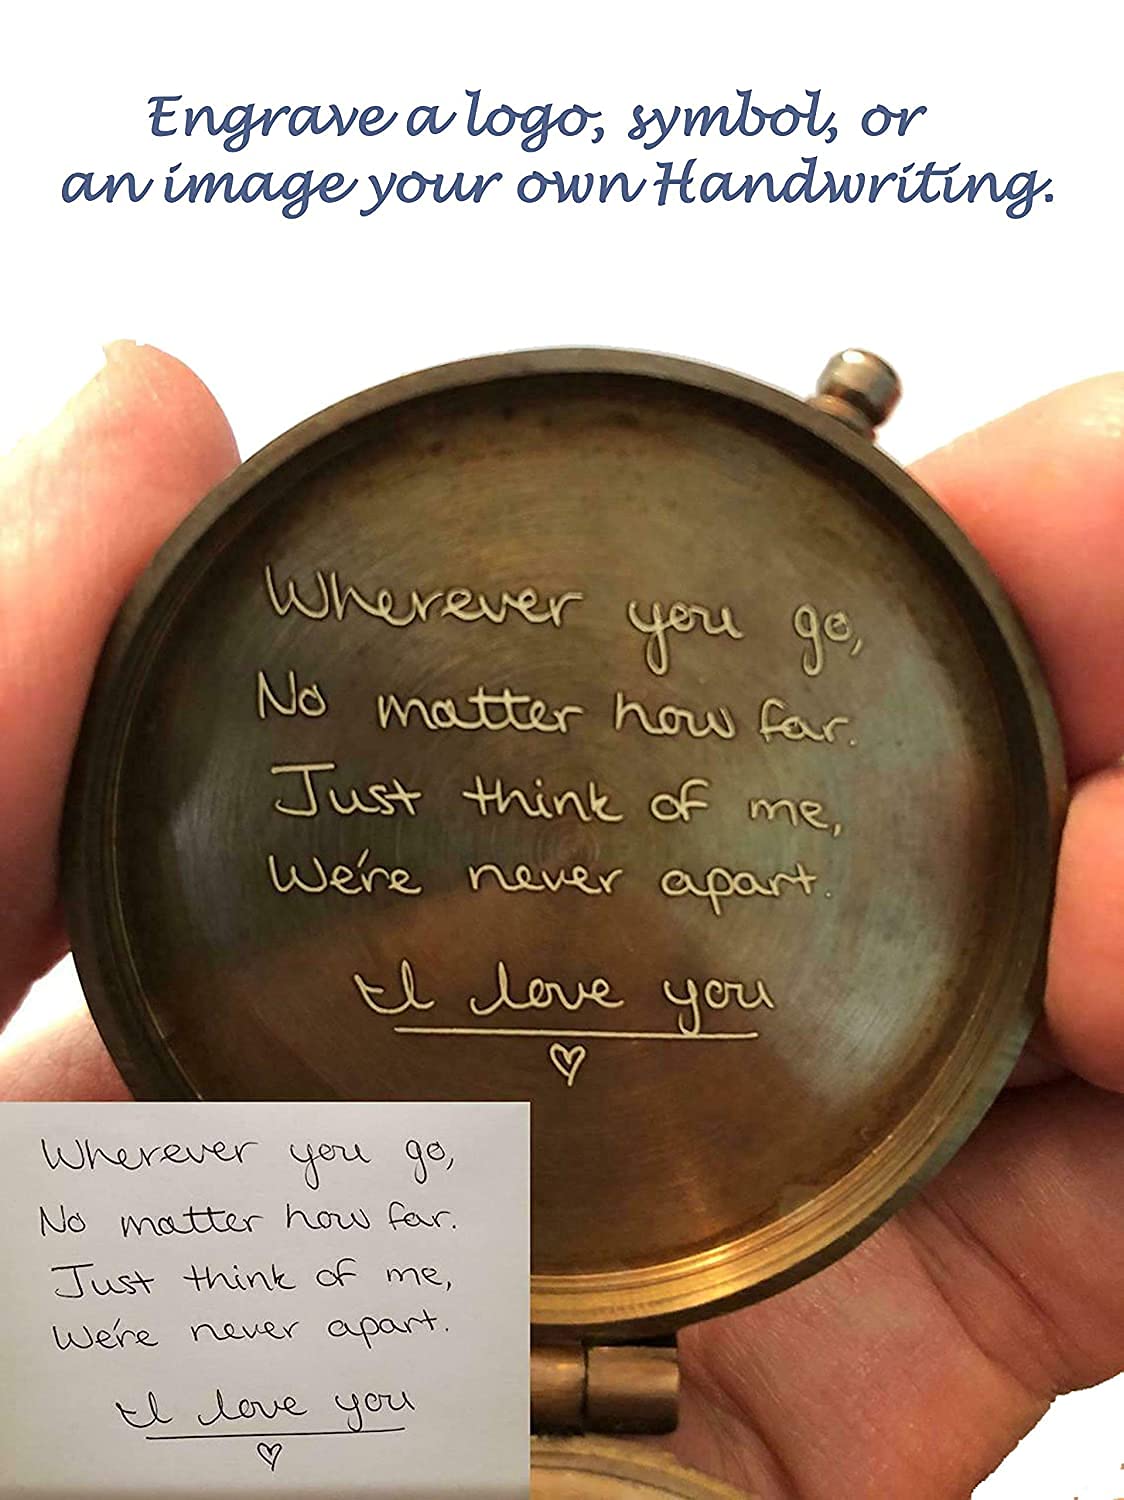 Engrave a logo, symbol, or
an image your own Handwriting.
Wherever you go,
No matter how far.
Just think of me,
We're never apart.
I love you
Wherever you go,
No matter how far.
Just think of me,
We're never apart.
I love you